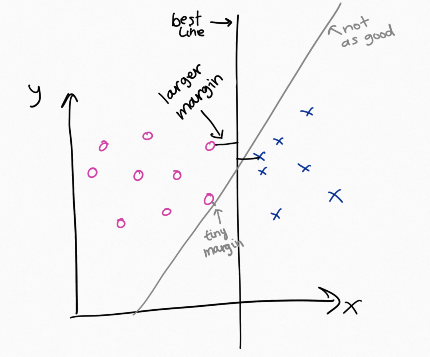 best
line
not
as good
larger
margin
y
tiny
margin
x